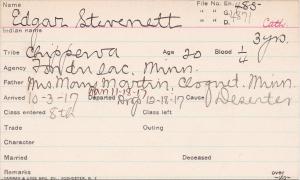 Name File No. En. 485
Edgar Stevenett " " G. 4871 Cath.
Indian name 3 yrs.
Tribe Chippewa Age 20 Blood 1/4
Agency Fond du Lac, Minn.
Father Mrs. Mary Martin, Cloquet, Minn.
Jan 11-18-17
Arrived 10-3-17 Departed Drop 10-18-17 Cause Deserter
Class entered 8th Class left
Trade Outing
Character
Married Deceased
Remarks over